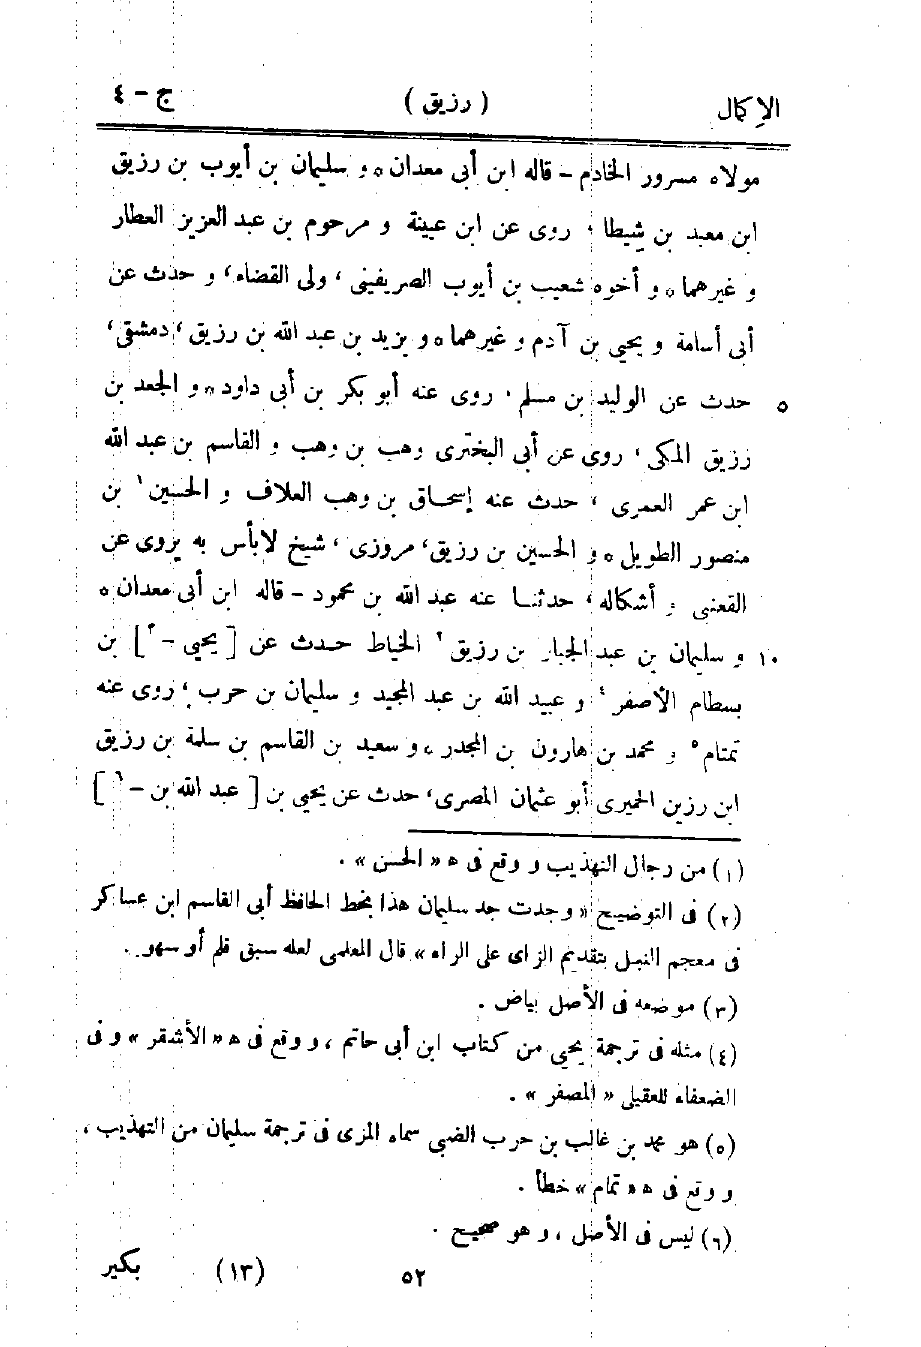 الإكمال ( رزيق ) ج - ٤
مولاه مسرور الخادم - قاله ابن أبى معدان ٥ و سليمان بن أيوب بن رزيق
ابن معبد بن شيطا، روى عن ابن عيينة و مرحوم بن عبد العزيز العطار
و غيرهما ٥ و أخوه شعيب بن أيوب الصريفينى، ولى القضاء، و حدث عن
أبى أسامة و يحيى بن آدم و غيرهما ٥ و يزيد بن عبد الله بن رزيق، دمشقى،
حدث عن الوليد بن مسلم، روى عنه أبو بكر بن أبى داود ٥ و الجعد بن ٥
رزيق المكى، روى عن أبى البخترى وهب بن وهب و القاسم بن عبد الله
ابن عمر العمرى، حدث عنه إسحاق بن وهب العلاف و الحسين١ بن
منصور الطويل ٥ و الحسين بن رزيق، مروزى، شيخ لابأس به يروى عن
القعنبى و أشكاله، حدثنا عنه عبد الله بن محمود - قاله ابن أبى معدان ٥
و سليمان بن عبد الجبار بن رزيق٢ الخياط حدث عن [ يحيى - ٣ ] بن ١٠
بسطام الأصفر٤ و عبيد الله بن عبد المجيد و سليمان بن حرب، روى عنه
تمتام٥ و محمد بن هارون بن المجدر ٥ و سعيد بن القاسم بن سلمة بن رزيق
ابن رزين الحميرى أبو عثمان المصرى، حدث عن يحيى بن [ عبد الله بن - ٦ ]
(١) من رجال التهذيب و وقع فى ه « الحسن » .
(٢) فى التوضيح « وجدت جد سليمان هذا بخط الحافظ أبى القاسم ابن عساكر
فى معجم النبل بتقديم الزاى على الراء » قال المعلمى لعله سبق قلم أو سهو .
(٣) موضعه فى الأصل بياض .
(٤) مثله فى ترجمة يحيى من كتاب ابن أبى حاتم ، و وقع فى ه « الأشقر » و فى
الضعفاء للعقيلى « المصفر » .
(٥) هو محمد بن غالب بن حرب الضبى سماه المزى فى ترجمة سليمان من التهذيب ،
و وقع فى ه « تمام » خطأ .
(٦) ليس فى الأصل ، و هو صحيح .
٥٢ (١٣) بكير